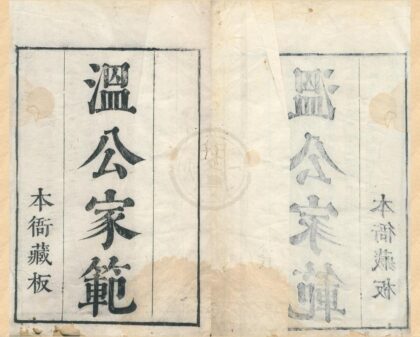 溫公家範
本衙藏板